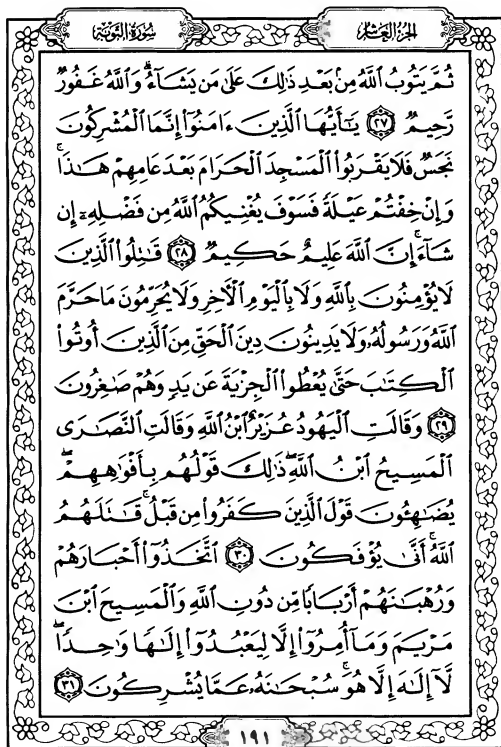 سُورَةُ التَّوْبَةِ
الجُزْءُ العَاشِرُ
ثُمَّ يَتُوبُ اللَّهُ مِنۢ بَعْدِ ذَٰلِكَ عَلَىٰ مَن يَشَآءُۗ وَاللَّهُ غَفُورٌ
رَّحِيمٌ ٢٧ يَـٰٓأَيُّهَا الَّذِينَ ءَامَنُوٓا۟ إِنَّمَا الْمُشْرِكُونَ
نَجَسٌ فَلَا يَقْرَبُوا۟ الْمَسْجِدَ الْحَرَامَ بَعْدَ عَامِهِمْ هَـٰذَاۚ
وَإِنْ خِفْتُمْ عَيْلَةً فَسَوْفَ يُغْنِيكُمُ اللَّهُ مِن فَضْلِهِۦٓ إِن
شَآءَۚ إِنَّ اللَّهَ عَلِيمٌ حَكِيمٌ ٢٨ قَـٰتِلُوا۟ الَّذِينَ
لَا يُؤْمِنُونَ بِاللَّهِ وَلَا بِالْيَوْمِ الْآخِرِ وَلَا يُحَرِّمُونَ مَا حَرَّمَ
اللَّهُ وَرَسُولُهُۥ وَلَا يَدِينُونَ دِينَ الْحَقِّ مِنَ الَّذِينَ أُوتُوا۟
الْكِتَـٰبَ حَتَّىٰ يُعْطُوا۟ الْجِزْيَةَ عَن يَدٍ وَهُمْ صَـٰغِرُونَ
٢٩ وَقَالَتِ الْيَهُودُ عُزَيْرٌ ابْنُ اللَّهِ وَقَالَتِ النَّصَـٰرَى
الْمَسِيحُ ابْنُ اللَّهِۖ ذَٰلِكَ قَوْلُهُم بِأَفْوَٰهِهِمْۖ
يُضَـٰهِـُٔونَ قَوْلَ الَّذِينَ كَفَرُوا۟ مِن قَبْلُۚ قَـٰتَلَهُمُ
اللَّهُۚ أَنَّىٰ يُؤْفَكُونَ ٣٠ اتَّخَذُوٓا۟ أَحْبَارَهُمْ
وَرُهْبَـٰنَهُمْ أَرْبَابًا مِّن دُونِ اللَّهِ وَالْمَسِيحَ ابْنَ
مَرْيَمَ وَمَآ أُمِرُوٓا۟ إِلَّا لِيَعْبُدُوٓا۟ إِلَـٰهًا وَٰحِدًاۖ
لَّآ إِلَـٰهَ إِلَّا هُوَۚ سُبْحَـٰنَهُۥ عَمَّا يُشْرِكُونَ ٣١
١٩١